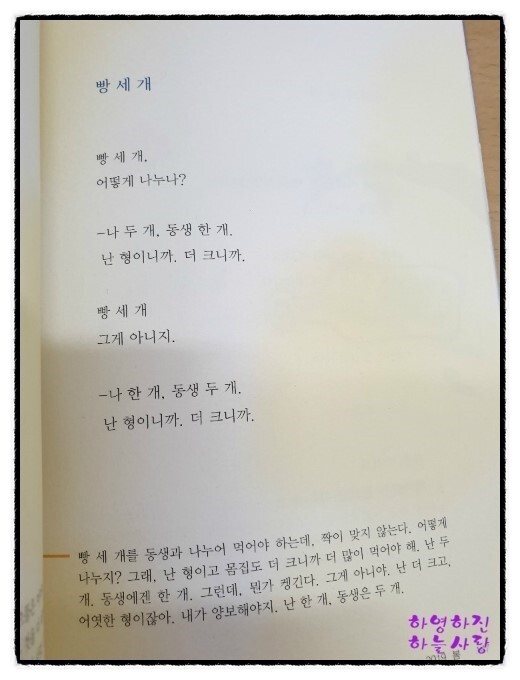 빵 세 개
빵 세 개.
어떻게 나누나?
-나 두 개, 동생 한 개.
난 형이니까. 더 크니까.
빵 세 개
그게 아니지.
-나 한 개, 동생 두 개.
난 형이니까. 더 크니까.
빵 세 개를 동생과 나누어 먹어야 하는데, 짝이 맞지 않는다. 어떻게
나누지? 그래, 난 형이고 몸집도 더 크니까 더 많이 먹어야 해. 난 두
개. 동생에겐 한 개. 그런데, 뭔가 켕긴다. 그게 아니야. 난 더 크고,
어엿한 형이잖아. 내가 양보해야지. 난 한 개, 동생은 두 개.
하영하진
하늘사랑
2019 봄